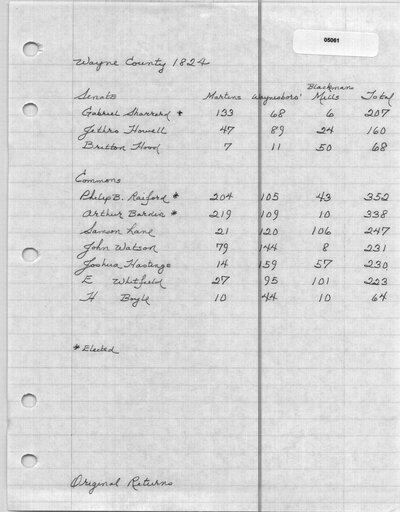 05061
Wayne County 1824
Blackmans
Senate Martins Waynesboro' Mills Total
Gabriel Sharrard * 133 68 6 207
Jethro Howell 47 89 24 160
Britton Hood 7 11 50 68
Commons
Philip B. Raiford * 204 105 43 352
Arthur Bardin * 219 109 10 338
Sanson Lane 21 120 106 247
John Watson 79 144 8 231
Joshua Hastings 14 159 57 230
E Whitfield 27 95 101 223
H Boyle 10 44 10 64
* Elected
Original Returns